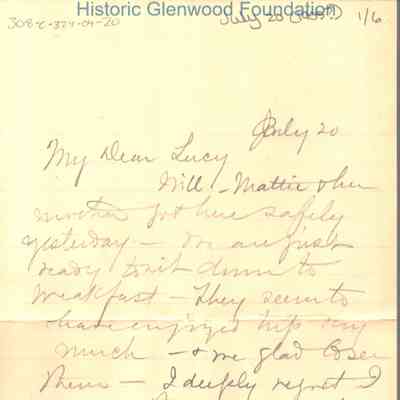 Historic Glenwood Foundation
308-C-374-04-20
July 20 1/6
July 20
My Dear Lucy
Will - Mattie & her
mother got here safely
yesterday - We are just
ready to sit down to
breakfast - They seem to
have enjoyed trip very
much - & we glad to see
them - I deeply regret I